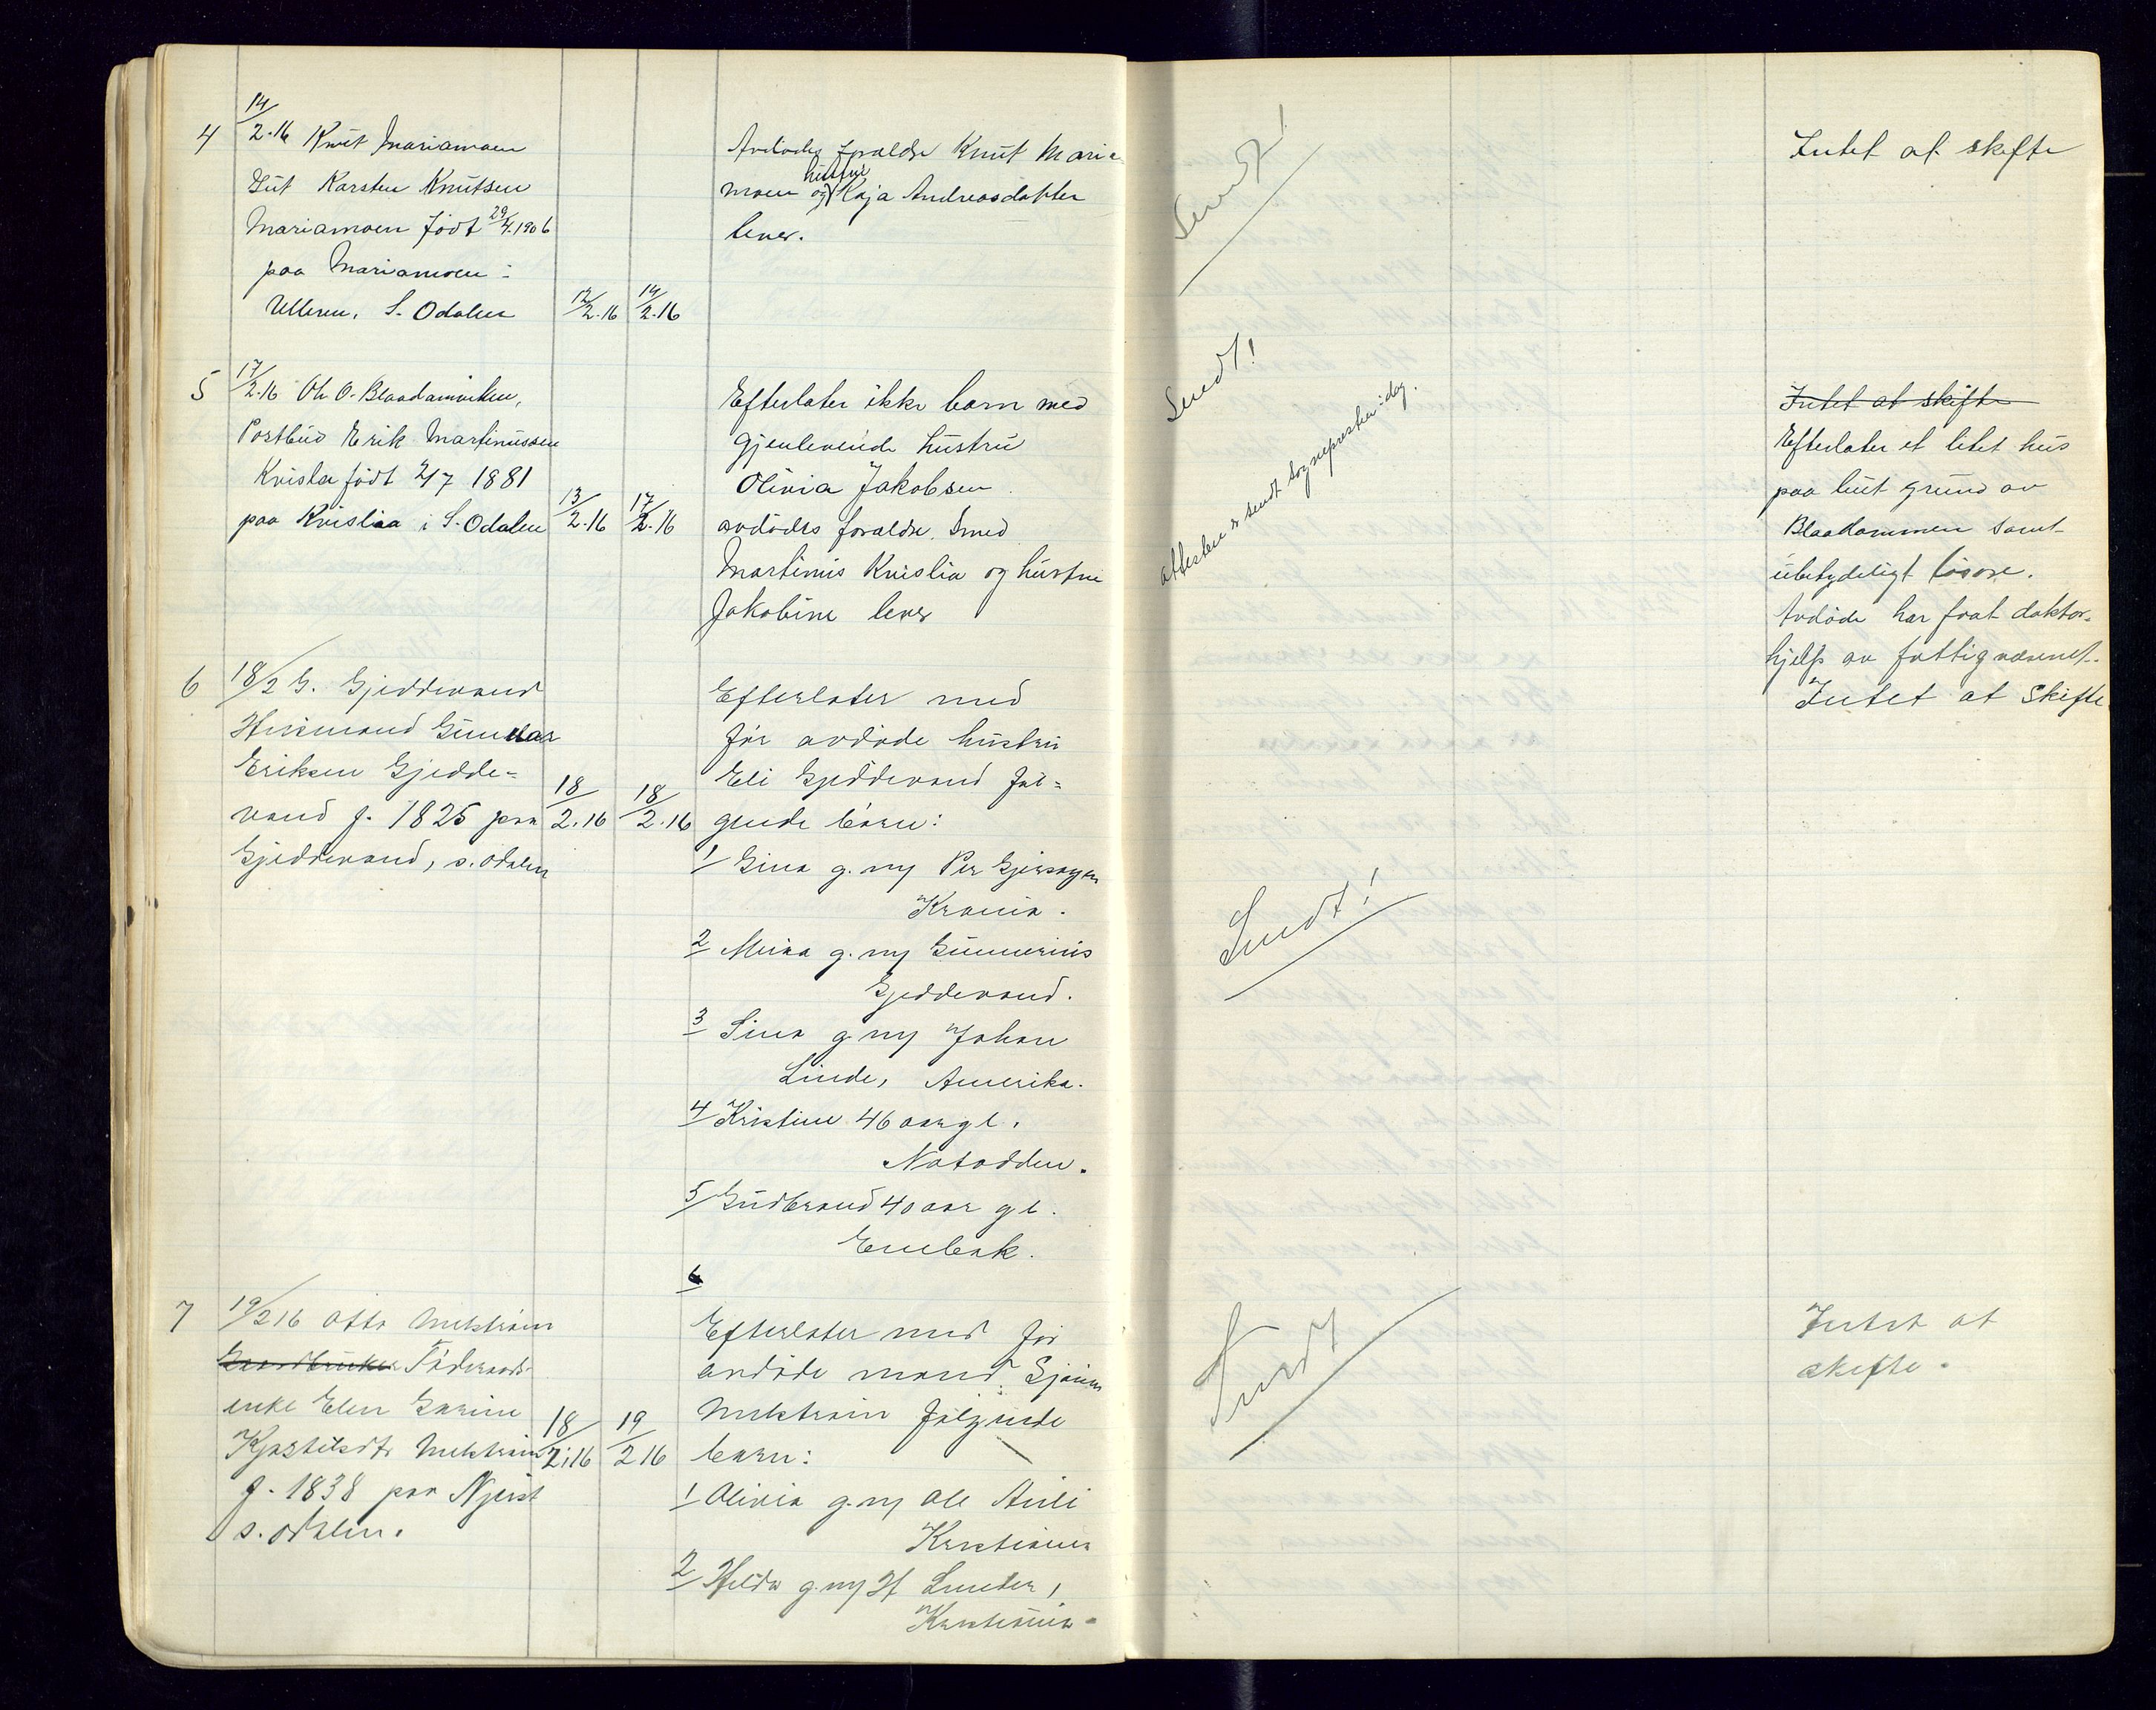 4
14/2.16 Knut Mariamoen
Gut Karsten Knutsen
Mariamoen født 29/4.1906
paa Mariamoen i
Ulleren, S. Odalen
12/2.16
14/2.16
Avdødes foræld​re Knut Maria
moen og hustru Kaja Andreasdatter
lever.
Sendt!
Intet at skifte
5
17/2.16 Ole O. Blaadamviken,
Postbud Erik Martinussen
Knislia født 2/7 1881
paa Knisliaa i S. Odalen
13/2.16
17/2.16
Efterlater ikke barn med
gjenlevende hustru
Olivia Jakobsen
avdødes forældre Smed
Martinus Knislia og hustru
Jakobine lever
Sendt!
attesten er sendt sognepresten idag.
Intet at skifte
Efterlater et litet hus
paa leiet grund av
Blaadammen samt
ubetydeligt løsøre.
Avdøde har faat doktor-
hjelp av fattigvæsenet.
6
18/2 G. Gjeddevand
Husmand Gunnar
Eriksen Gjedde=
vand f. 1825 paa
Gjeddevand, s. odalen
18/2.16
18/2.16
Efterlater med
før avdøde hustru
Eli Gjeddevand føl=
gende børn:
1/ Gina g. m/ Per
Krania.
2/ g. m/ Gunnerius
Gjeddevand.
3/ Sina g. m/ Johan
Linde, Amerika.
4/ Kristine 46 aar gl.
Notodden.
5/ Gudbrand 40 aar gl.
Enebak.
6
Sendt!
Intet at Skifte
7
19/2 16 Otto
Gaardbruker Føderaads-
enke Elen Karine
f. 1838 paa
s. odalen.
18/2.16
19/2 16
Efterlater med før
avdøde mand
følgende
børn:
1/ Olivia g. m/ Ole
Kristiania
2/ Hilda g. m/ H
Kristiania.
Sendt
Intet at
skifte.